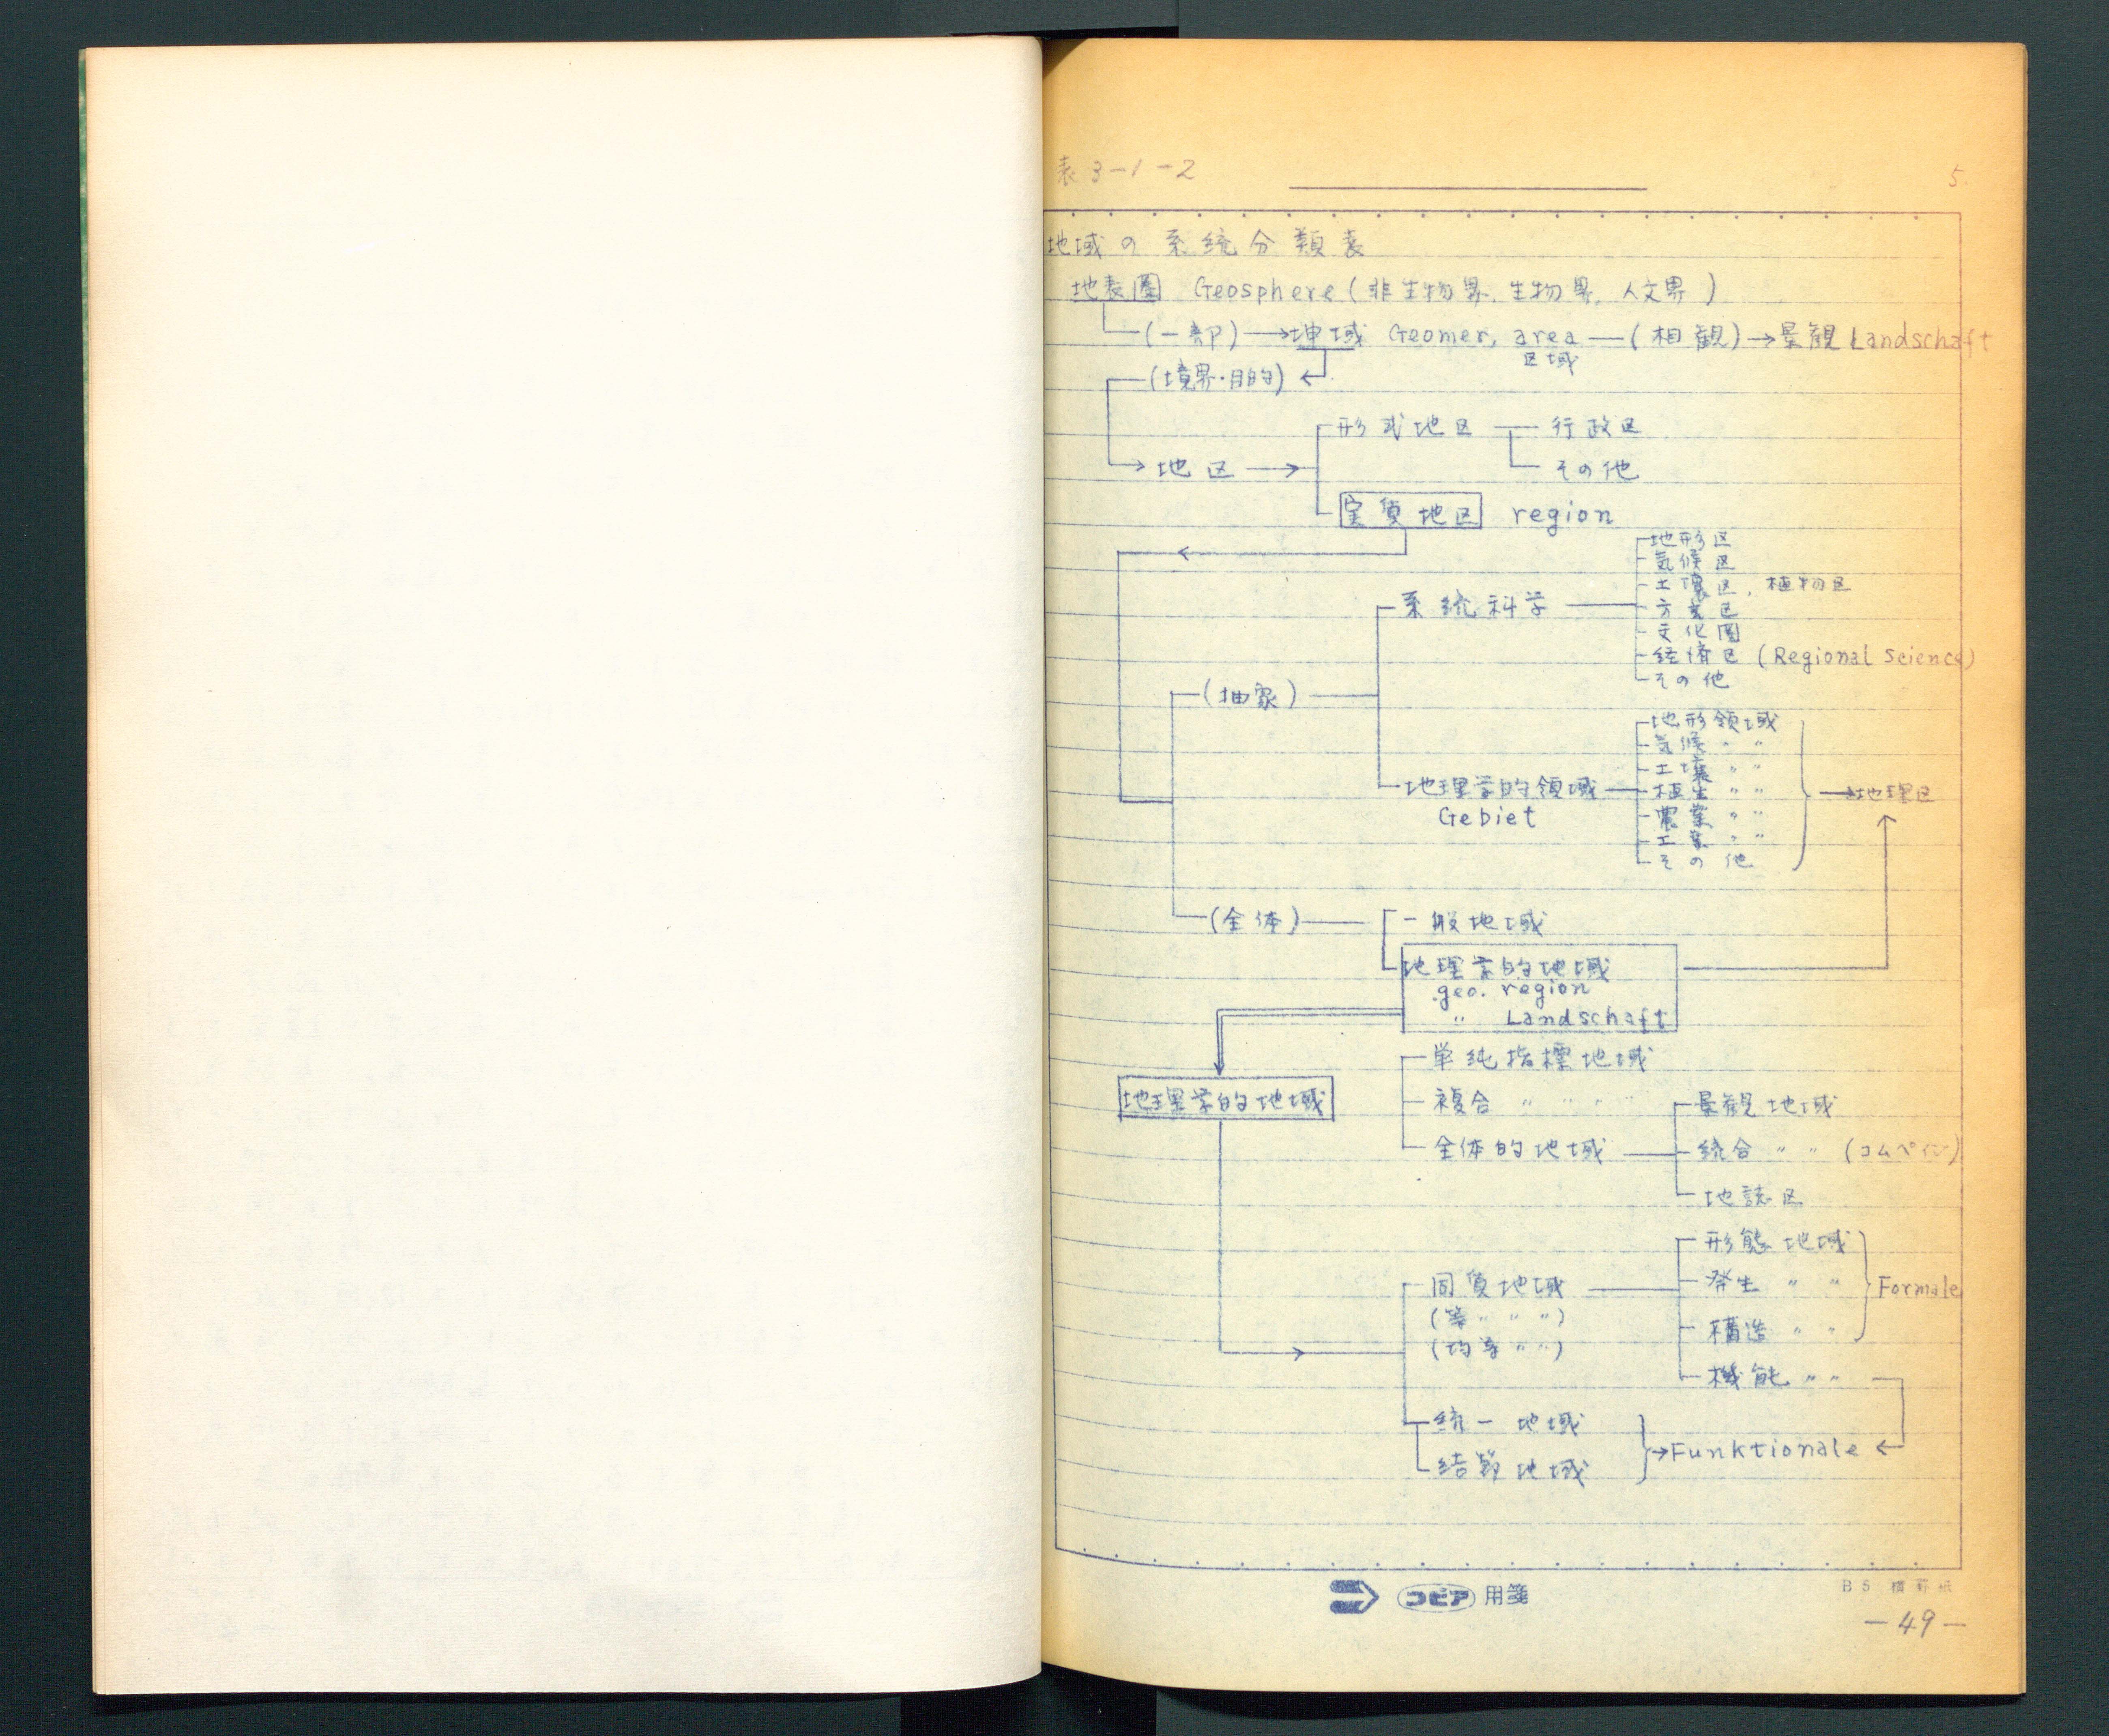 表3-1-2
5.
地域の系統分類表
地表圏 Geosphere (非生物界, 生物界, 人文界)
(一部) → 地域 Geomer, area — (相観) → 景観 Landschaft
区域
(境界・目的)
形式地区 行政区
→ 地区 → その他
実質地区 region
地形区
気候区
土壌区, 植物区
系統科学
方言区
文化圏
経済区 (Regional Science)
その他
(抽象)
地形領域
気候 〃 〃
土壌 〃 〃
地理学的領域 植生 〃 〃 → 地理区
Gebiet 農業 〃 〃
工業 〃 〃
その他
(全体) 一般地域
地理学的地域
geo. region
〃 Landschaft
単純指標地域
地理学的地域 複合 〃 〃 〃 〃 景観地域
全体的地域 統合 〃 〃
地誌区
形態地域
同質地域 発生 〃 〃 Formale
(等 〃 〃 〃)
構造 〃 〃
(均等 〃 〃)
機能 〃 〃
統一地域
→ Funktionale ←
結節地域
コピア 用箋
B5 横罫紙
— 49 —